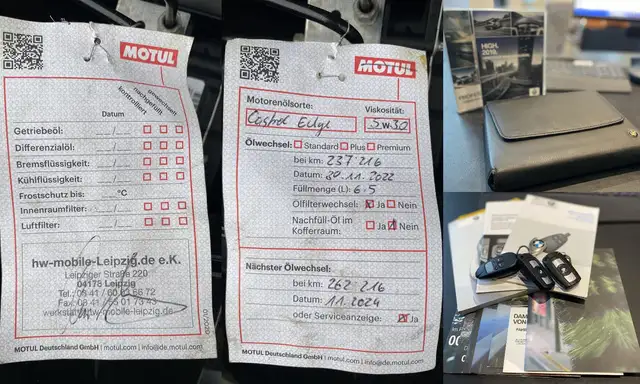 MOTUL
Datum
kontrolliert
nachgefüllt
gewechselt
Getriebeöl:
Differenzialöl:
Bremsflüssigkeit:
Kühlflüssigkeit:
Frostschutz bis: °C
Innenraumfilter:
Luftfilter:
hw-mobile-Leipzig.de e.K.
Leipziger Straße 220
04178 Leipzig
MOTUL Deutschland GmbH | motul.com | info@de.motul.com
MOTUL
Motorenölsorte: Viskosität:
Castrol Edge 5W30
Ölwechsel: Standard Plus Premium
bei km: 237 216
Datum: 30.11.2022
Füllmenge (L): 6.5
Ölfilterwechsel: Ja Nein
Nachfüll-Öl im
Kofferraum: Ja Nein
Nächster Ölwechsel:
bei km: 262 216
Datum: 11.2024
oder Serviceanzeige: Ja
MOTUL Deutschland GmbH | motul.com | info@de.motul.com
HIGH.